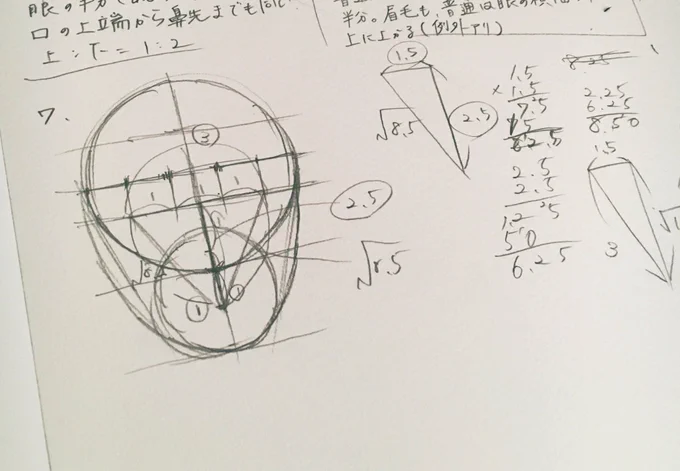 口の上端から鼻先までも同じ
上:下=1:2
半分。眉毛も、普通は眼の横幅
上に上がる(例外アリ)
7.
③
1
1
1
①
①
2.5
√8.5
1.5
√8.5
2.5
1.5
×1.5
75
15
2.5
2.5
125
50
6.25
8.25
2.25
6.25
8.50
1.5
3